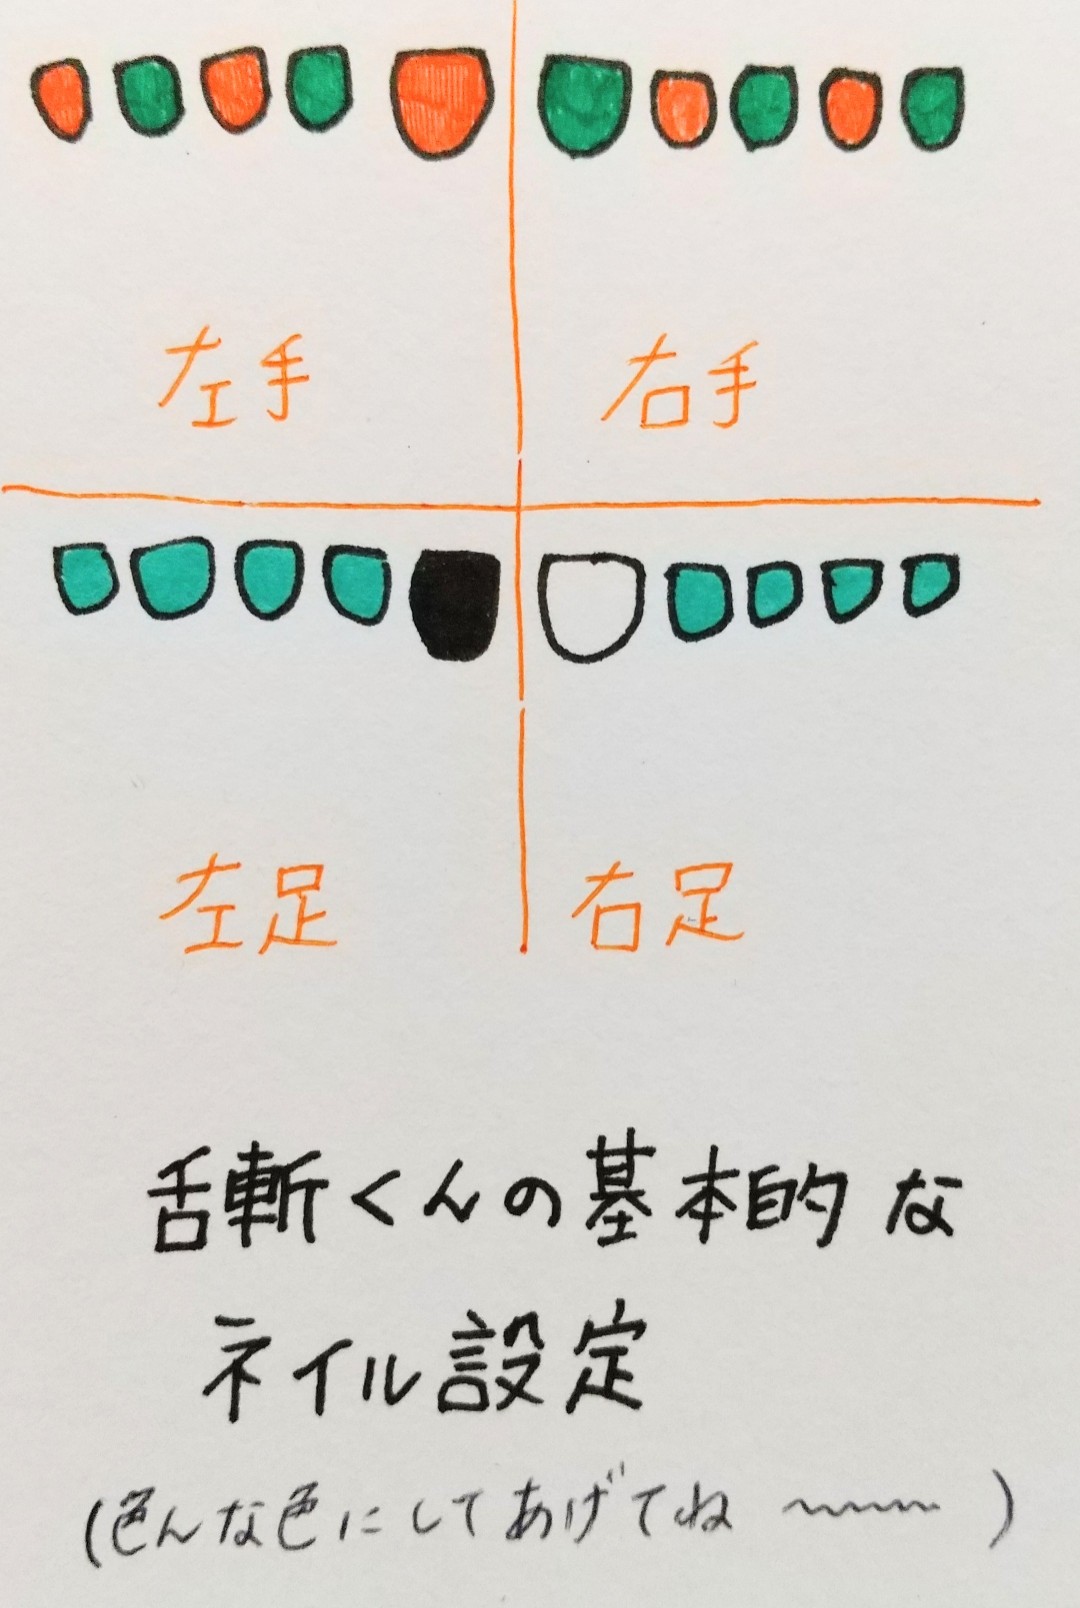 左手
右手
左足
右足
舌斬くんの基本的な
ネイル設定
(色んな色にしてあげてね 〜〜〜)